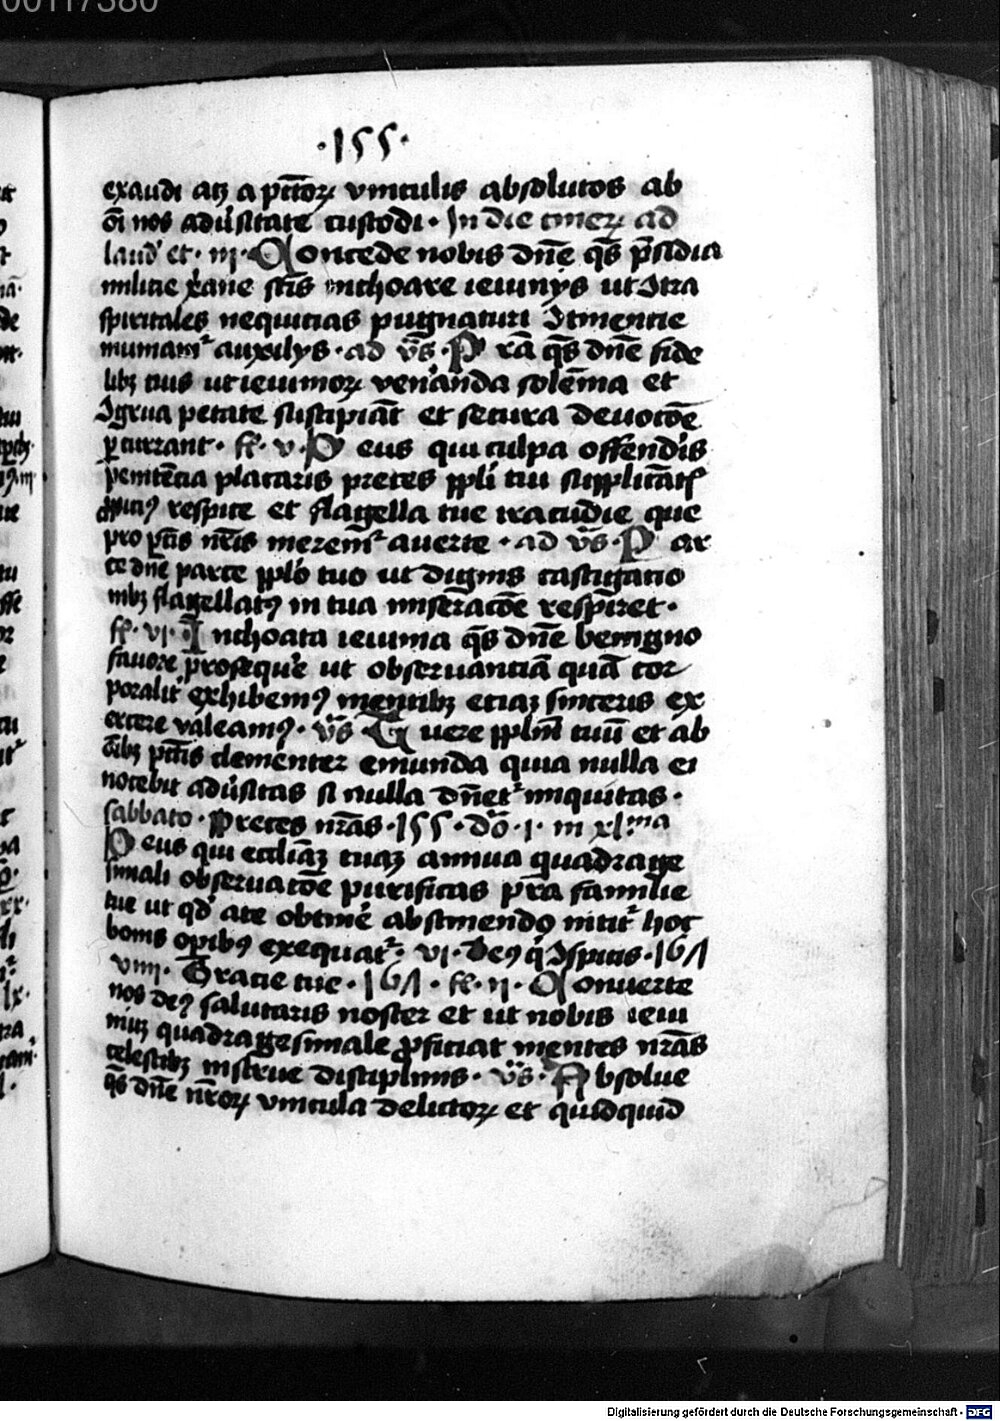 00117380
·155·
exaudi atqꝫ a pctōrꝫ vinculis absolutos ab
oi̅ nos adu̓sitate custodi · In die cinerꝫ ad
laud̓ et · iii · Concede nobis dn̄e qs̄ p̄sidia
milicie xp̄ane sc̄is inchoare ieiuniis ut ꝯtra
spiritales nequitias pugnaturi ꝯtinentie
muniam̃ auxiliis · ad vs̄ · P ra̅ qs̄ dn̄e fide
libꝫ tuis ut ieiuniorꝫ ven̓anda solēnia et
ꝯgrua pietate suscipiāt et secura deuotōe
ꝑcurrant · fr̄ · v · D eus qui culpa offendis
penitētia placaris preces ppl̄i tui supplicātꝭ
ꝓpitiꝰ respice et flagella tue iracūdie que
pro pctis nr̄is merem̃ auerte · ad vs̄ · P ar
ce dn̄e parce ppl̄o tuo ut dignis castigatio
nibꝫ flagellatꝰ in tua miseratōe respiret ·
fr̄ · vi · I nchoata ieiunia qs̄ dn̄e benigno
fauore proseque̓ ut obseruantiā quā cor
poralit̓ exhibemꝰ mentibꝫ etiaꝫ sinceris ex
ercere valeamꝰ · vs̄ · T uere ppl̄m tuū et ab
oi̅bꝫ pctis clementer emunda quia nulla ei
nocebit adu̓sitas si nulla dn̄et̃ iniquitas ·
sabbato · Preces nr̄as · 155 · dō · i · in xl.ma
D eus qui eccliāꝫ tuaꝫ annua quadrage
simali obseruatōe purificas p̄ta familie
tue ut qd̓ a te obtine̓ abstinendo nitit̃ hoc
bonis opibꝰ exequat̃ · vi · Deꝰ q̓ ꝯspicis · 161
viiii · Gracie tue · 161 · fr̄ · ii · C onuerte
nos deꝰ salutaris noster et ut nobis ieiu
niuꝫ quadragesimale ꝓficiat mentes nr̄as
celestibꝫ instrue disciplinis · vs̄ · A bsolue
qs̄ dn̄e nr̄orꝫ vincula delictorꝫ et quidquid
Digitalisierung gefördert durch die Deutsche Forschungsgemeinschaft - DFG